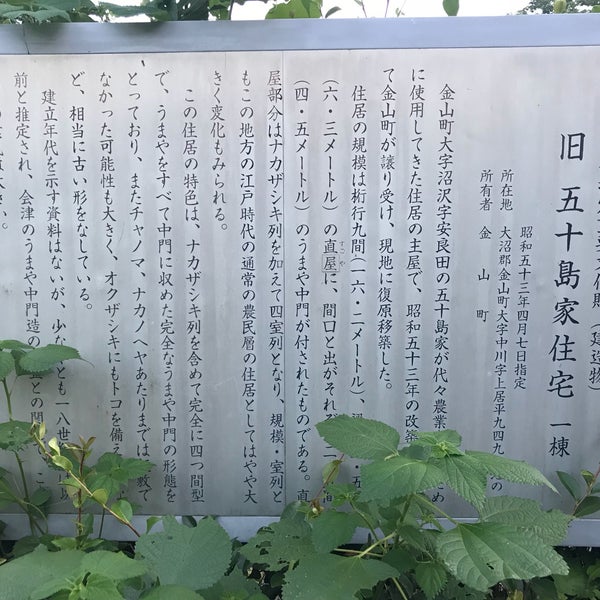 文化財（建造物）
旧 五十島家住宅 一棟
昭和五十三年四月七日指定
所在地 大沼郡金山町大字中川字上居平九四九 の
所有者 金山町
金山町大字沼沢字安良田の五十島家が代々農業 ため
に使用してきた住居の主屋で、昭和五十三年の改築
て金山町が譲り受け、現地に復原移築した。
住居の規模は桁行九間（一六・二メートル）、 ・五
（六・三メートル）の直屋に、間口と出がそれ 二 間
すごや
（四・五メートル）のうまや中門が付されたものである。直
屋部分はナカザシキ列を加えて四室列となり、規模・室列と
もこの地方の江戸時代の通常の農民層の住居としてはやや大
きく変化もみられる。
この住居の特色は、ナカザシキ列を含めて完全に四つ間型
で、うまやをすべて中門に収めた完全なうまや中門の形態を
とっており、またチャノマ、ナカノヘヤあたりまでは 敷で
なかった可能性も大きく、オクザシキにもトコを備え
ど、相当に古い形をなしている。
建立年代を示す資料はないが、少な とも一八世 以
前と推定され、会津のうまや中門造の との関 こ